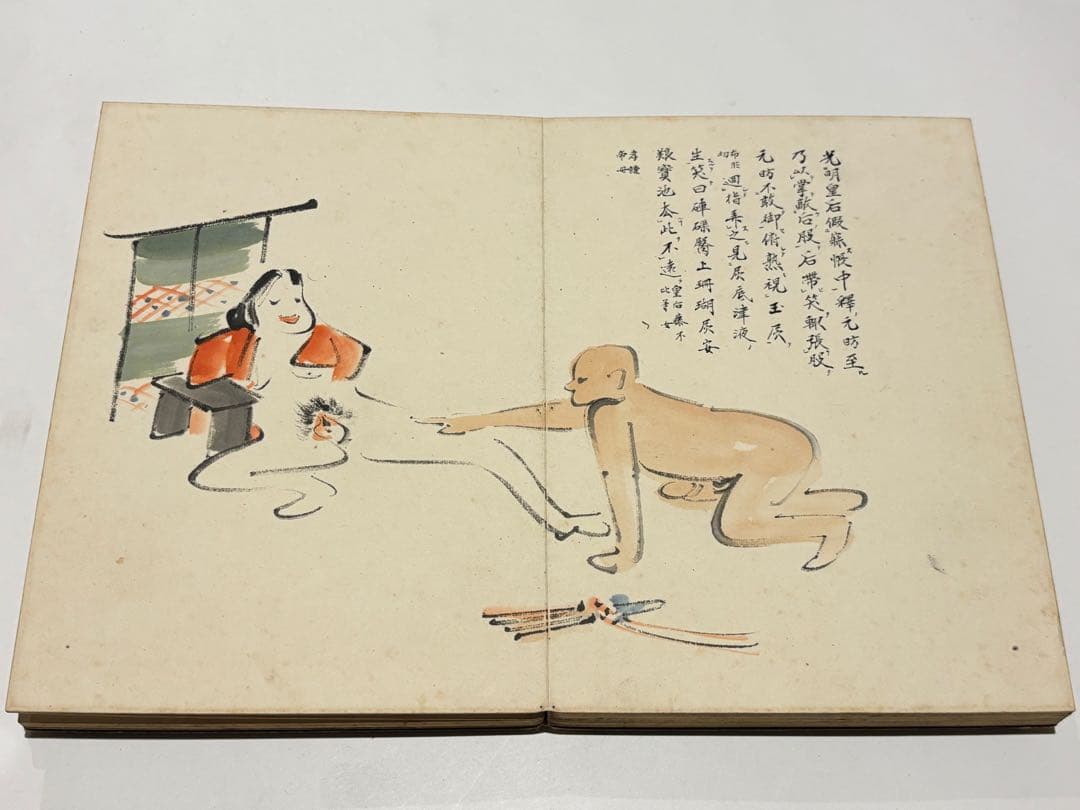 光明皇后假寐帳中釋元昉至
乃以掌敲后股后帶笑輙張股
元昉不敢御俯熟視玉戻
布非切 週指弄之見戻底津液
生笑曰硨磲醫上珊瑚戻安
艱寶池去此不遠 皇后藤不比等女
孝謙帝母